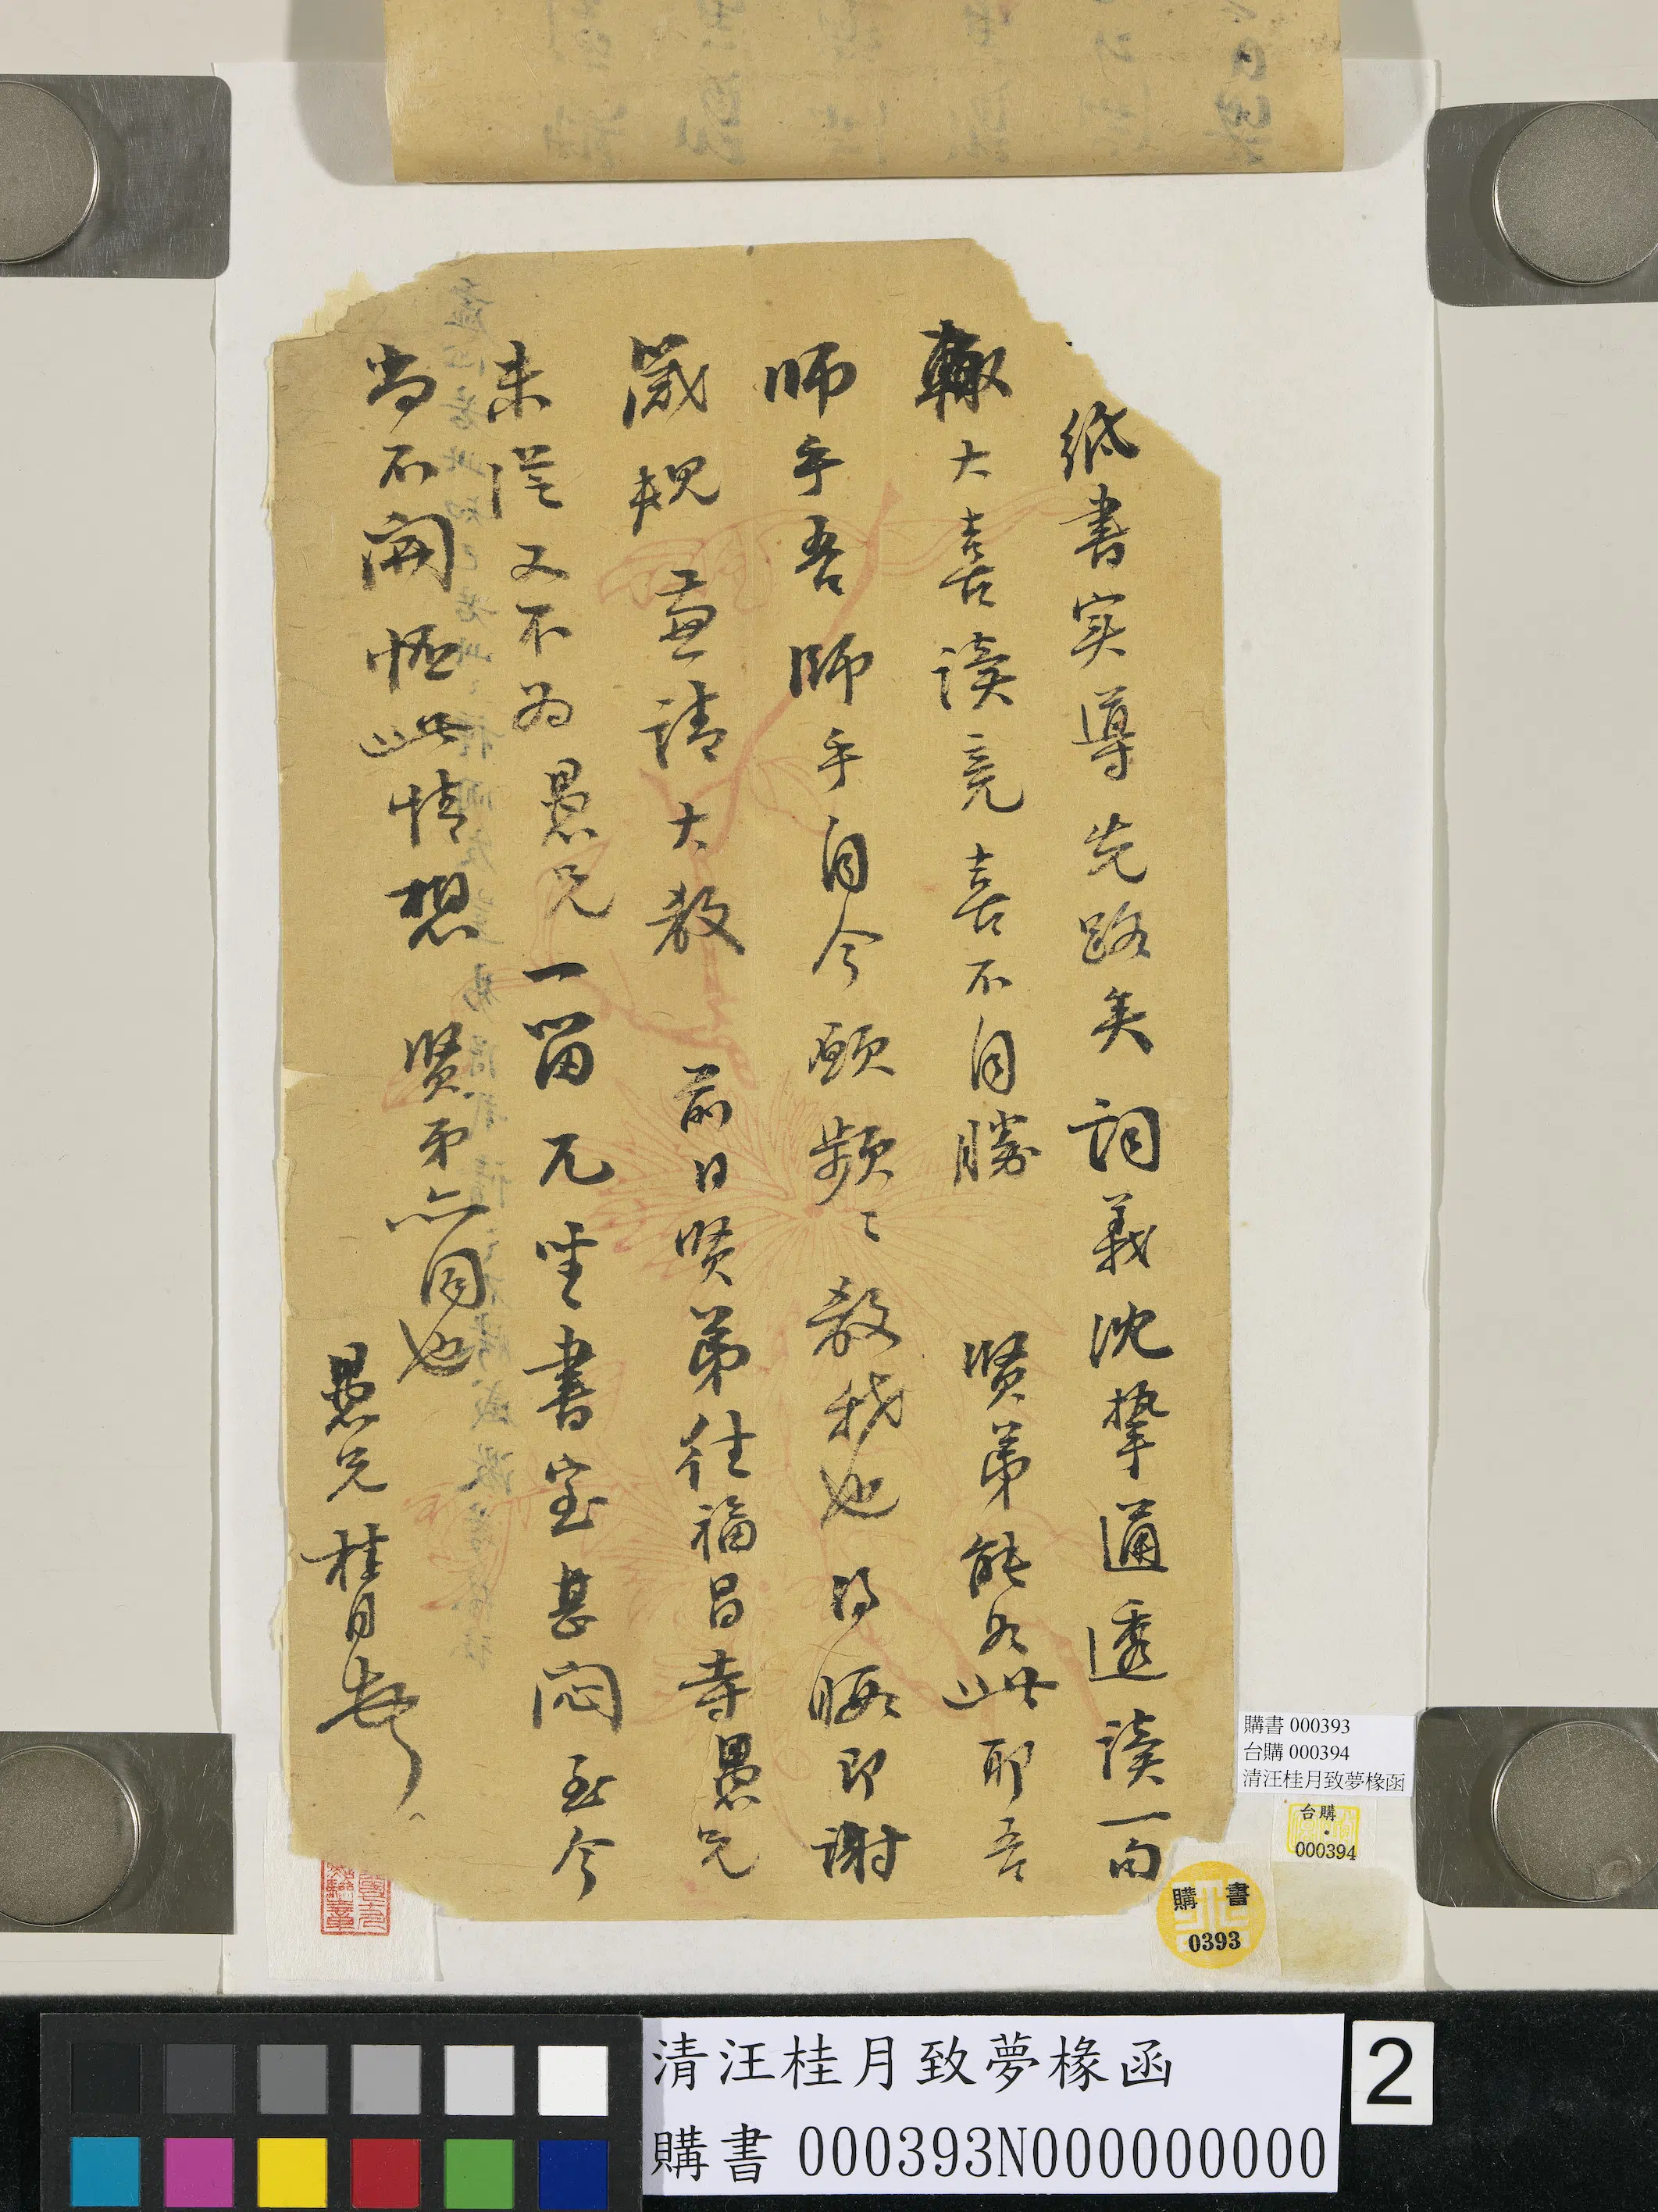 紙書实導先路矣詞義沈摯通透讀一句
輙大喜讀竟喜不自勝賢弟能如此耶吾
師乎吾師乎自今願頻〻教我也得暇即謝
箴規並請大教前日賢弟往福昌寺愚兄
未從又不为愚兄一留兀坐書室甚闷至今
尚不開怀此情想賢弟亦同也
愚兄桂月
購書 000393
台購 000394
清汪桂月致夢椽函
台購
000394
購書
0393
清汪桂月致夢椽函
購書 000393N000000000
2